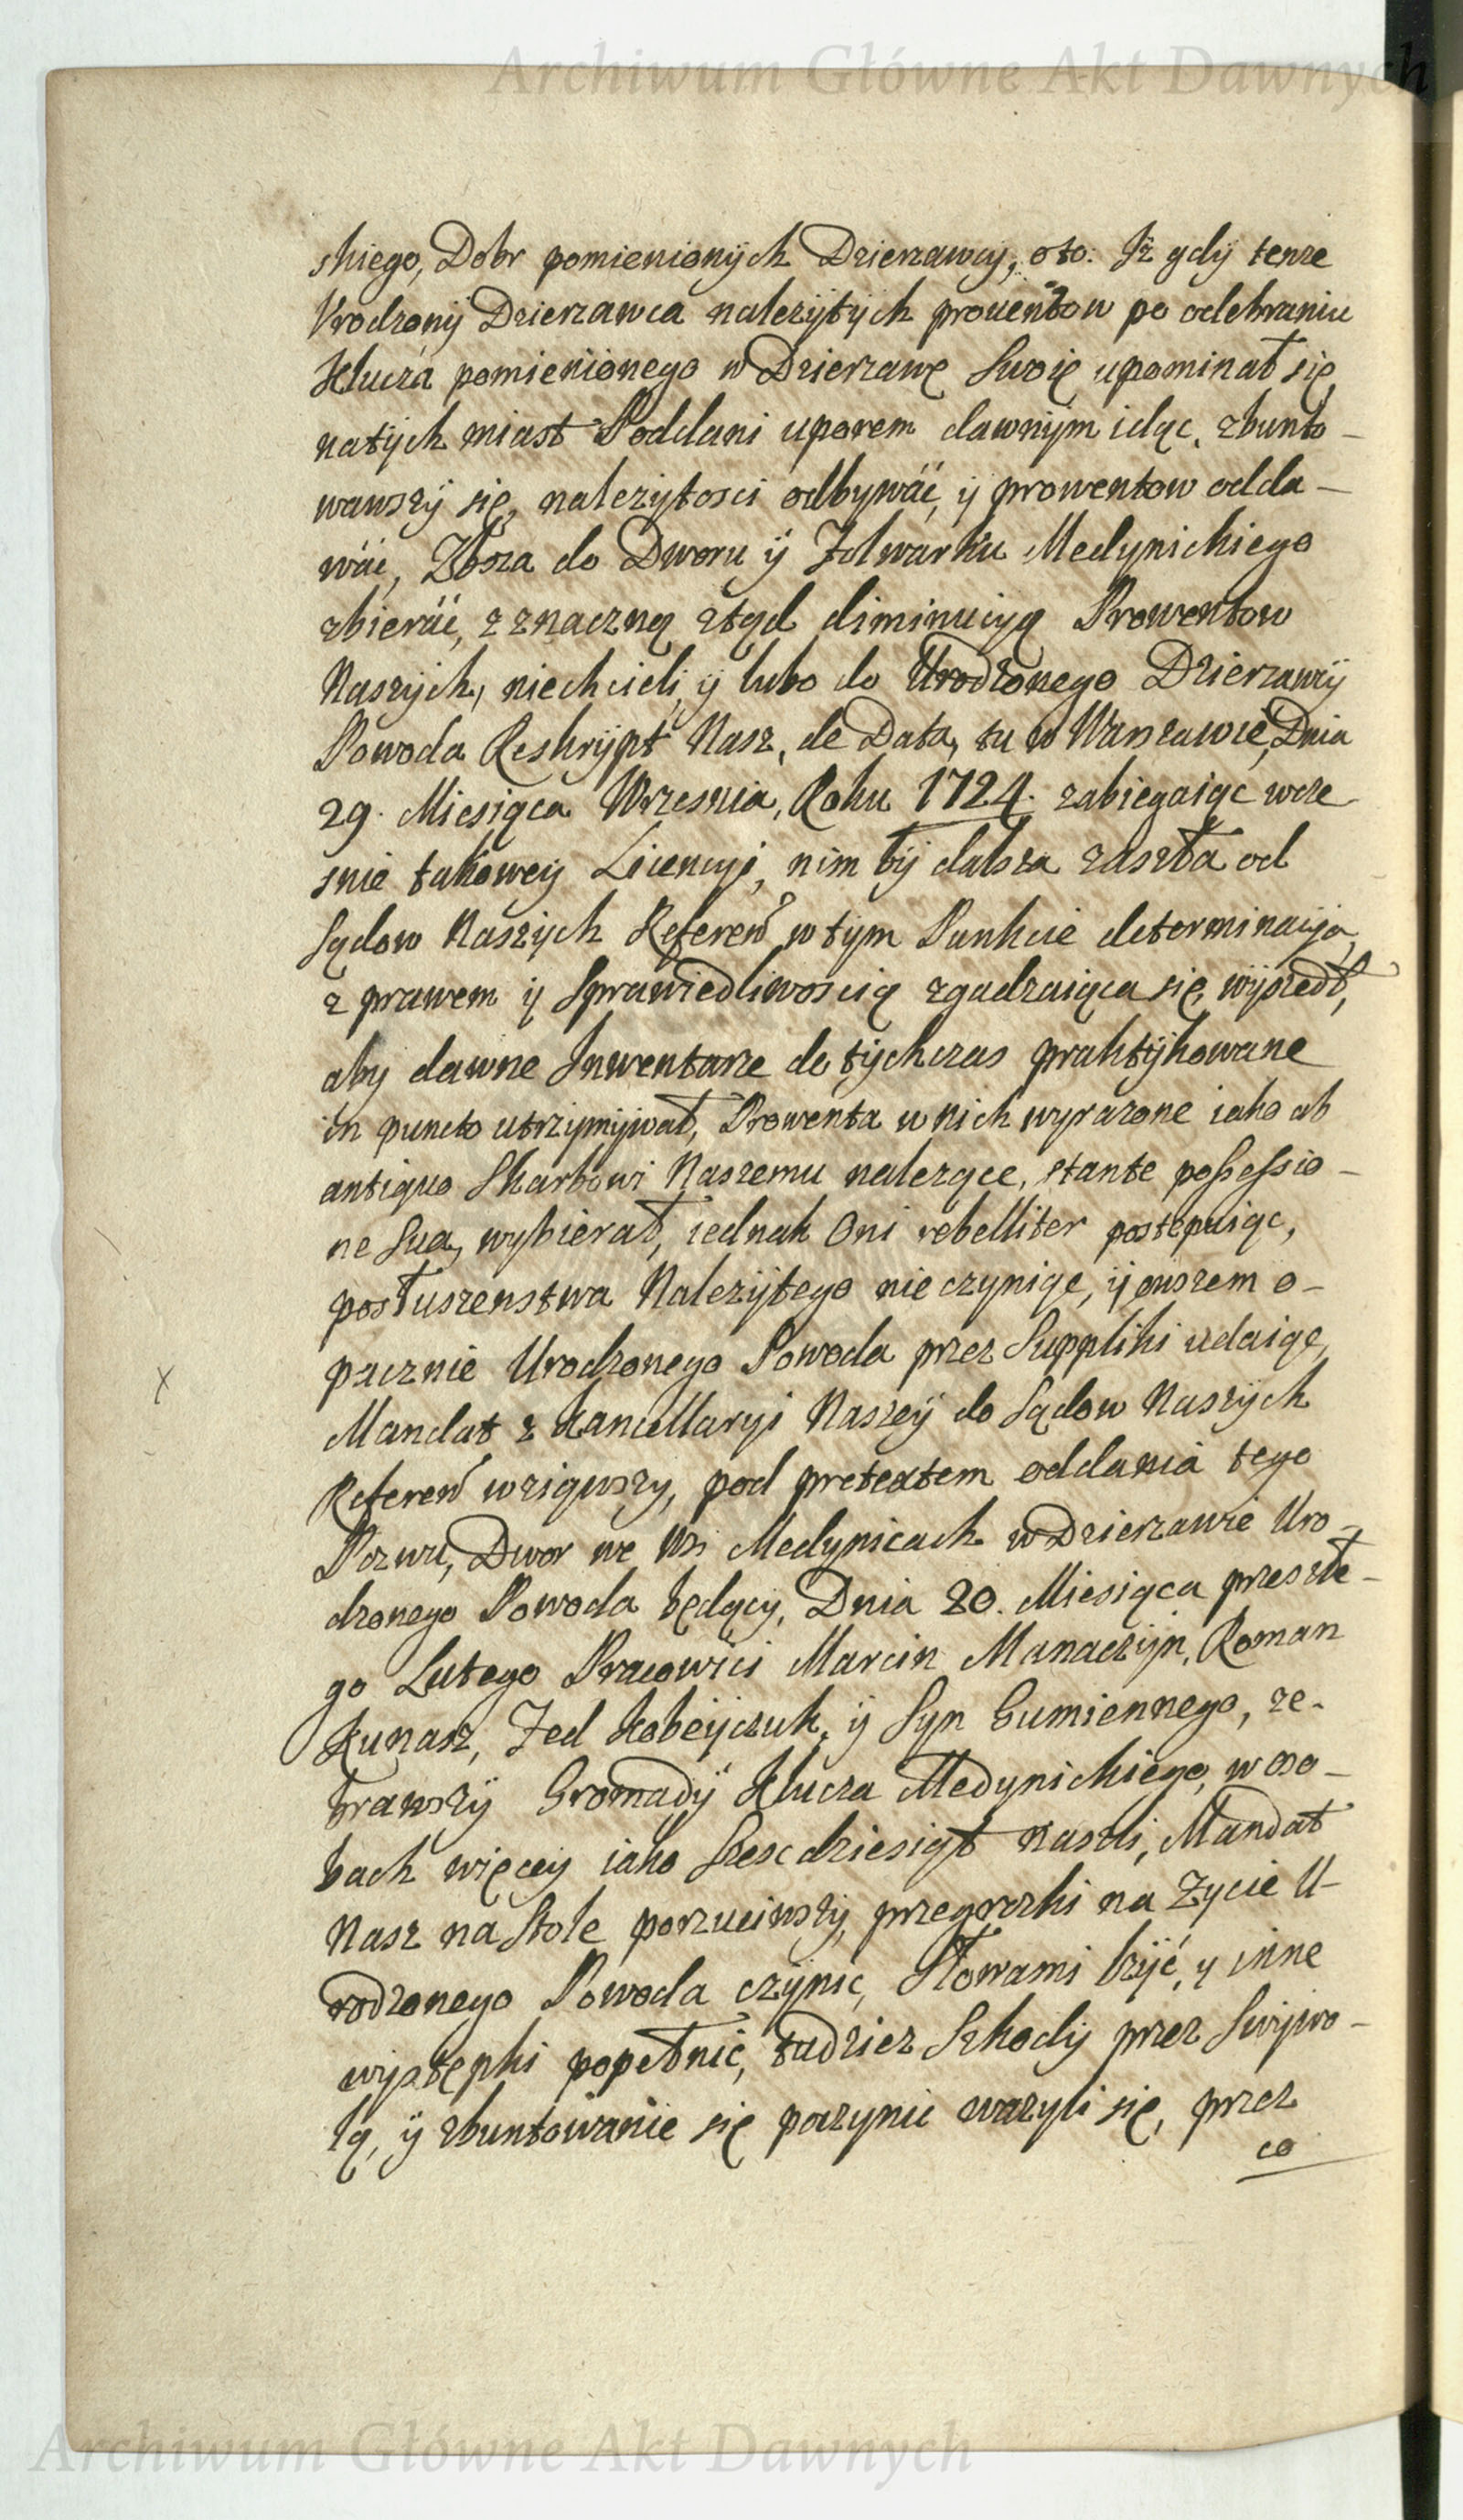 Archiwum Główne Akt Dawnych
skiego, Dobr pomienionych Dzierzawcy, oto: Iż gdy tenze
Vrodzony Dzierzawca nalezytych prouentow po odebraniu
Klucza pomienionego w Dzierzawę Swoię upominał się,
natych miast Poddani uporem dawnym idąc, zbunto-
wawszy się, nalezytosci odbywać, y prowentow odda-
wać, Zboza do Dworu y Folwarku Medynickiego
zbierać, z znaczną ztąd diminucyą Prowentow
Naszych, niechcieli, y lubo do Urodzonego Dzierzawcy
Powoda Reskrypt Nasz, de Data, tu w Warszawie, Dnia
29. Miesiąca Wrzesnia, Roku 1724. zabiegaiąc wcze
snie takowey Licencyi, nim by dalsza zaszła od
Sądow Naszych Referen w tym Punkcie determinacya,
z prawem y Sprawiedliwoscią zgadzaiąca się, wyszedł,
aby dawne Inwentarze do tychczas praktykowane
in puncto utrzymywał, Prowenta w nich wyrazone iako ab
antiquo Skarbowi Naszemu nalezące, stante possessio-
ne Sua, wybierał, iednak Oni rebelliter postępuiąc,
posłuszenstwa Nalezytego nie czyniąc, y owszem o-
pacznie Urodzonego Powoda przez Suppliki udaiąc,
Mandat z Kancellaryi Naszey do Sądow Naszych
Referen wziąwszy, pod pretextem oddania tego
Pozwu, Dwor we Wsi Medynicach w Dzierzawie Uro-
dzonego Powoda będący, Dnia 20. Miesiąca przeszłe-
go Lutego Pracowici Marcin Manaczyn, Roman
Kunasz, Fed Kobeyczuk, y Syn Gumiennego, ze-
brawszy Gromady Klucza Medynickiego, w oso-
bach więcey iako Szesc dziesiąt naszli, Mandat
Nasz na Stole porzuciwszy, przegrozki na Zycie U-
rodzonego Powoda czynić, Słowami lzyć, y inne
występki popełnić, tudziez Szkody przez Swywo-
lą, y zbuntowanie się poczynic wazyli się, przez
co
Archiwum Główne Akt Dawnych